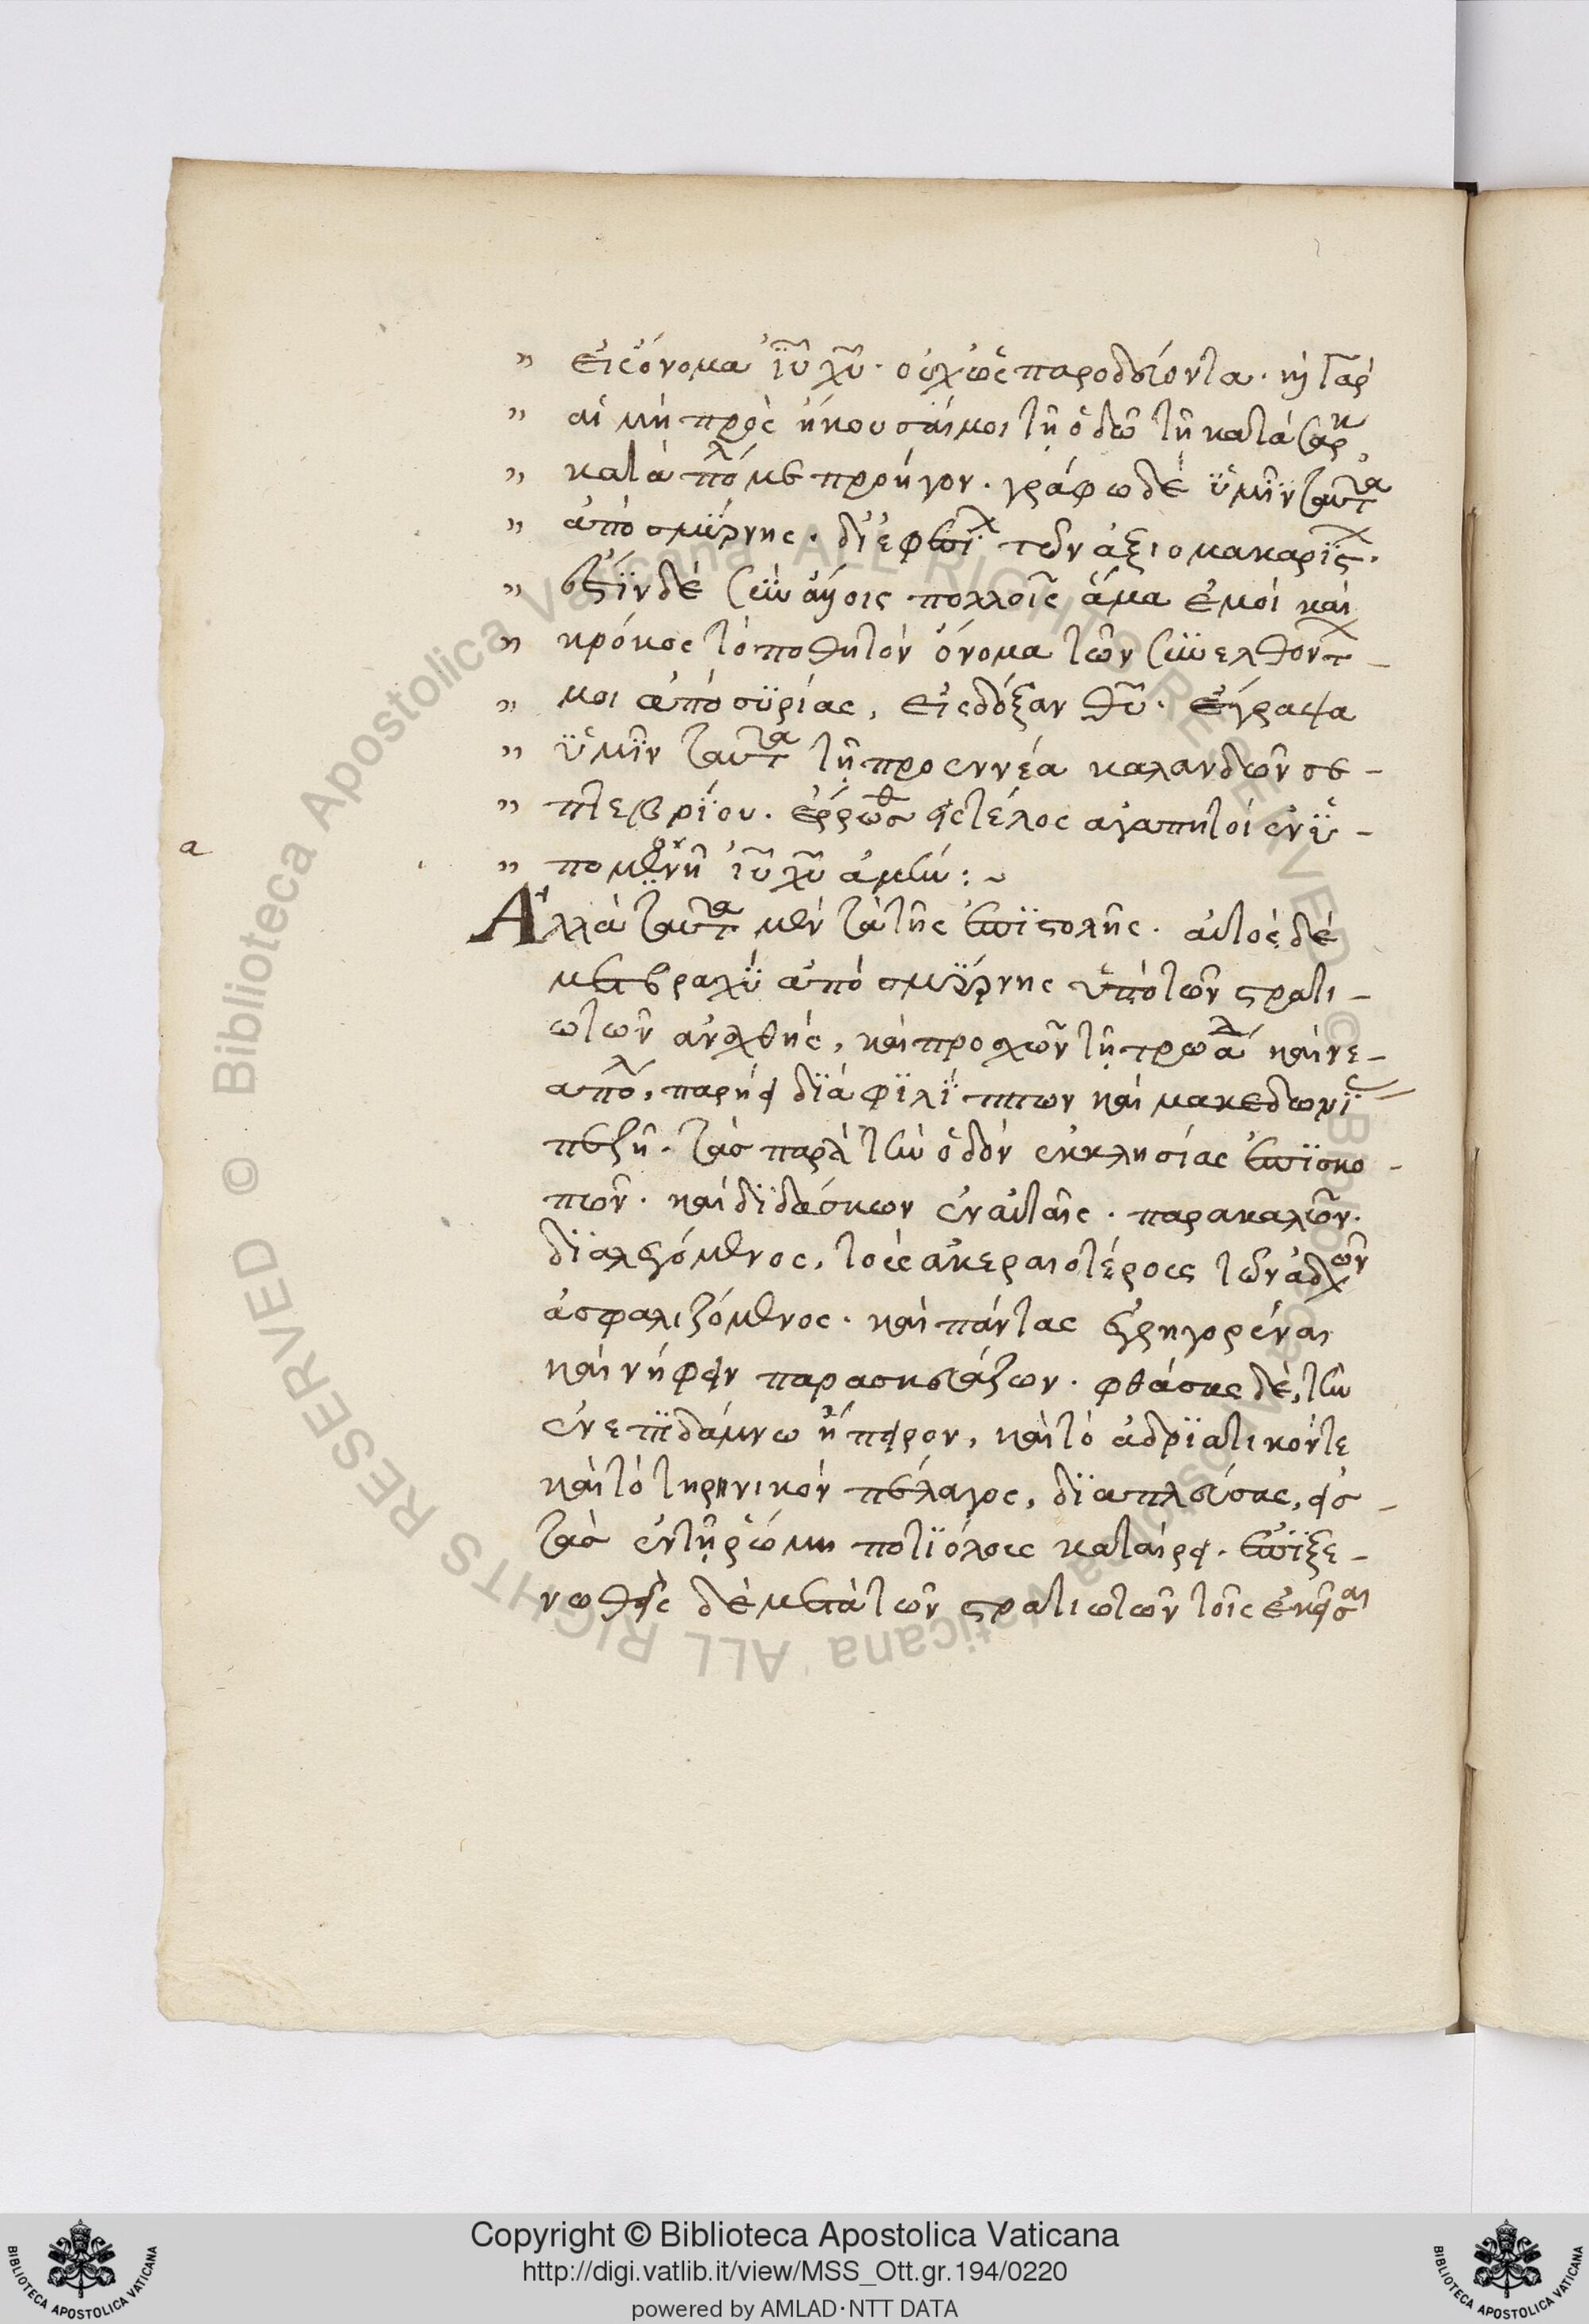 " εἰς ὄνομα ἰ̅υ̅ χ̅υ̅· οὐχ ὡς παροδεύοντα· κỳ γὰρ
" αἱ μὴ προσήκουσαί μοι τῇ ὁδῷ τῇ κατὰ σάρκ
" κατὰ πόλ με προῆγον· γράφω δὲ ὑμῖν ταῦτα
" ἀπὸ σμύρνης· δι' ἐφεσί τῶν ἀξιομακαρίστ·
" ἔστιν δὲ σὺν ἄλλοις πολλοῖς ἅμα ἐμοὶ καὶ
" κρόκος τὸ ποθητὸν ὄνομα τῶν συνελθόντ -
" μοι ἀπὸ συρίας, εἰς δόξαν θ̅υ̅· ἔγραψα
" ὑμῖν ταῦτα τῇ προ ἐννέα καλανδῶν σε -
" πτεβρίου· ἔρρωσθ εἰς τέλος ἀγαπητοὶ ἐν ὑ -
" πομονῇ ἰ̅υ̅ χ̅υ̅ ἀμήν: ~
a
Ἀλλὰ ταῦτα μὲν τὰ τῆς ἐπιστολῆς· αὐτὸς δὲ
μετ βραχὺ ἀπὸ σμύρνης ὑπὸ τῶν στρατι -
ωτῶν ἀναχθῇς, καὶ προσχῶν τῇ τρωάδ καὶ νε -
απόλ, παρῄει διὰ φιλίππων καὶ μακεδωνί
πεζῇ· τὰσ παρὰ τὴν ὁδὸν ἐκκλησίας ἐπισκο -
πῶν· καὶ διδάσκων ἐν αὐταῖς· παρακαλῶν·
διαλεγόμενος, τοὺς ἀκεραιοτέρους τῶν ἀδελφῶν
ἀσφαλιζόμενος· καὶ πάντας ἐγρηγορέναι
καὶ νήφειν παρασκευάζων· φθάσας δὲ, τὴν
ἐν ἐπιδάμνω ἤπειρον, καὶ τὸ ἀδριατικόν τε
καὶ τὸ τηρηνικὸν πέλαγος, διαπλεύσας, εἰσ -
τὰσ ἐν τῇ ῥώμη ποτιόλους καταίρει· ἐπιξε -
νωθεὶς δὲ μετὰ τῶν στρατιωτῶν τοῖς ἐκεῖσαι
Copyright © Biblioteca Apostolica Vaticana
http://digi.vatlib.it/view/MSS_Ott.gr.194/0220
powered by AMLAD·NTT DATA
© Biblioteca Apostolica Vaticana ALL RIGHTS RESERVED
© Biblioteca Apostolica Vaticana ALL RIGHTS RESERVED
BIBLIOTECA APOSTOLICA VATICANA
BIBLIOTECA APOSTOLICA VATICANA